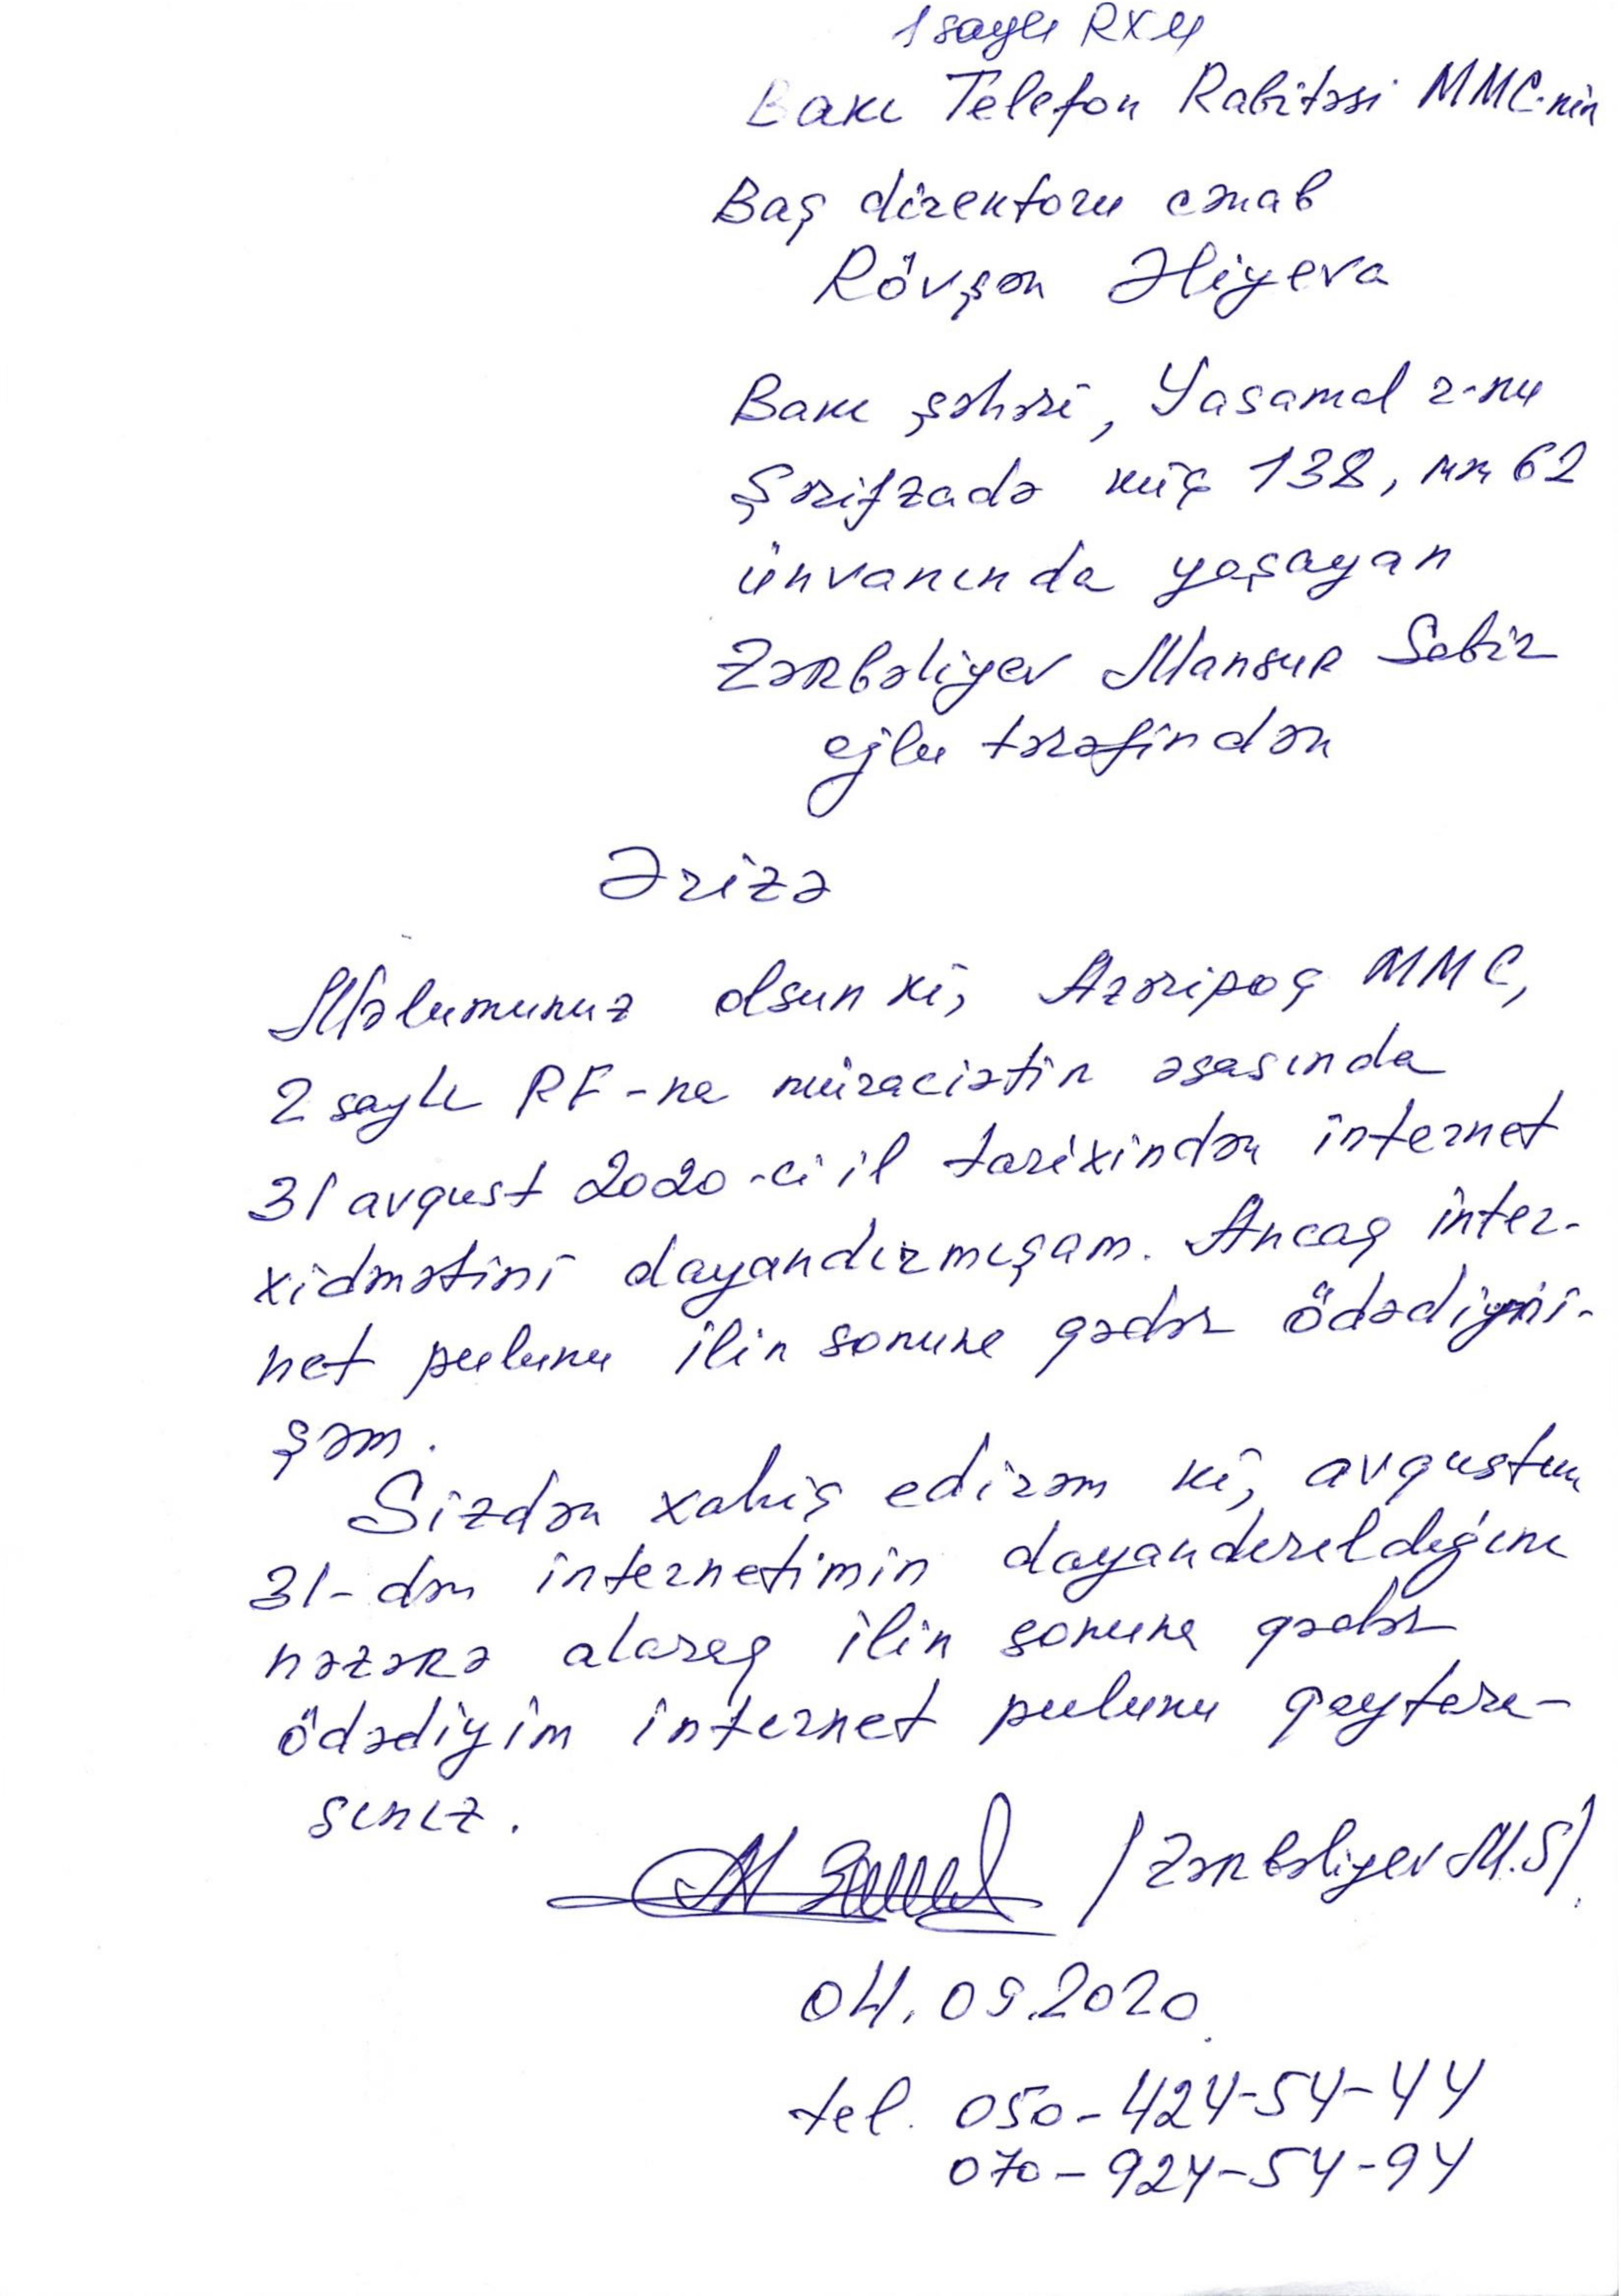 1 saylı RXM
Bakı Telefon Rabitəsi MMC-nin
Baş direktoru cənab
Rövşən Əliyevə
Bakı şəhəri, Yasamal r-nu
Şərifzadə küç 138, mn 62
ünvanında yaşayan
Zərbəliyev Mansur Sabir
oğlu tərəfindən
Ərizə
Məlumunuz olsun ki, Azərpoç MMC,
2 saylı RF-na müraciətin əsasında
31 avqust 2020-ci il tarixindən internet
xidmətini dayandırmışam. Ancaq inter-
net pulunu ilin sonuna qədər ödədiymi-
şəm.
Sizdən xahiş edirəm ki, avqustun
31-dən internetimin dayandırıldığını
nəzərə alaraq ilin sonuna qədər
ödədiyim internet pulunu qaytara-
sınız.
/Zərbəliyev M.S/
04.09.2020
tel. 050-424-54-44
070-924-54-94